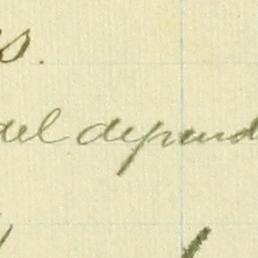 s.
del depend